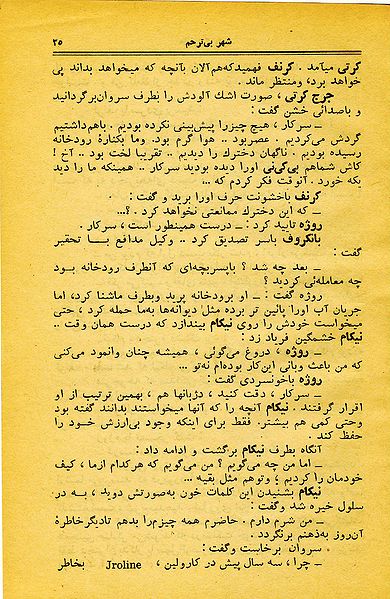 شهر بی‌ترحم
۲۵
کرتی میآمد . کرنف فهمیدکه‌هم‌آلان بآنچه که میخواهد بداند پی
خواهد برد، ومنتظر ماند .
جرج کرتی ، صورت اشك آلودش را بطرف سروان‌برگردانید
و باصدائی خشن گفت :
ــ سرکار ، هیچ چیزرا پیش‌بینی نکرده بودیم . باهم‌داشتیم
گردش می‌کردیم . عصربود .. هوا گرم بود. وما بکنارهٔ رودخانه
رسیده بودیم . ناگهان دخترك را دیدیم .. تقریبا لخت بود .. آخ !
کاش شماهم بی‌کی‌نی اورا دیده بودید سرکار .. همینکه ما را دید
یکه خورد . آنوقت فکر کردم که ...
کرنف باخشونت حرف اورا برید و گفت :
ــ که این دخترك ممانعتی نخواهد کرد . ؟...
روژه تایید کرد : ــ درست همینطور است ، سرکار .
بانکروف باسر تصدیق کرد .. وکیل مدافع بــا تحقیر
گفت :
ــ بعد چه شد ؟ باپسربچه‌ای که آنطرف رودخانه بــود
چه معامله‌ئی کردید ؟
روژه گفت : ــ او برودخانه پرید وبطرف ماشنا کرد، اما
جریان آب اورا پائین تر برده مثل دیوانه‌ها به‌ما حمله کرد ، حتی
میخواست خودش را روی نیکام بیندازد که درست همان وقت ..
نیکام خشمگین فریاد زد :
ــ روژه ، دروغ می‌گوئی ، همیشه چنان وانمود می‌کنی
که من باعث وبانی این‌کار بوده‌ام نه‌تو ...
روژه باخونسردی گفت :
ــ سرکار ، دقت کنید ، دژبانها هم ، بهمین ترتیب از او
اقرار گرفتند . نیکام آنچه را که آنها میخواستند بدانند گفته بود
وحتی کمی هم بیشتر. فقط برای اینکه وجود بی‌ارزش خــود را
حفظ کند .
آنگاه بطرف نیکام برگشت و ادامه داد :
ــ اما من چه می‌گویم ؟ من می‌گویم که هرکدام ازما ، کیف
خودمان را کردیم ، وتوهم مثل بقیه ...
نیکام بشنیدن این کلمات خون به‌صورتش دوید ، بــه در
سلول خیره شد وگفت :
ــ من شرم دارم . حاضرم همه چیزرا بدهم تادیگرخاطرهٔ
آن‌روز به‌ذهنم برنگردد .
سروان برخاست وگفت :
ــ چرا ، سه سال پیش در کارولین ، Jroline بخاطر